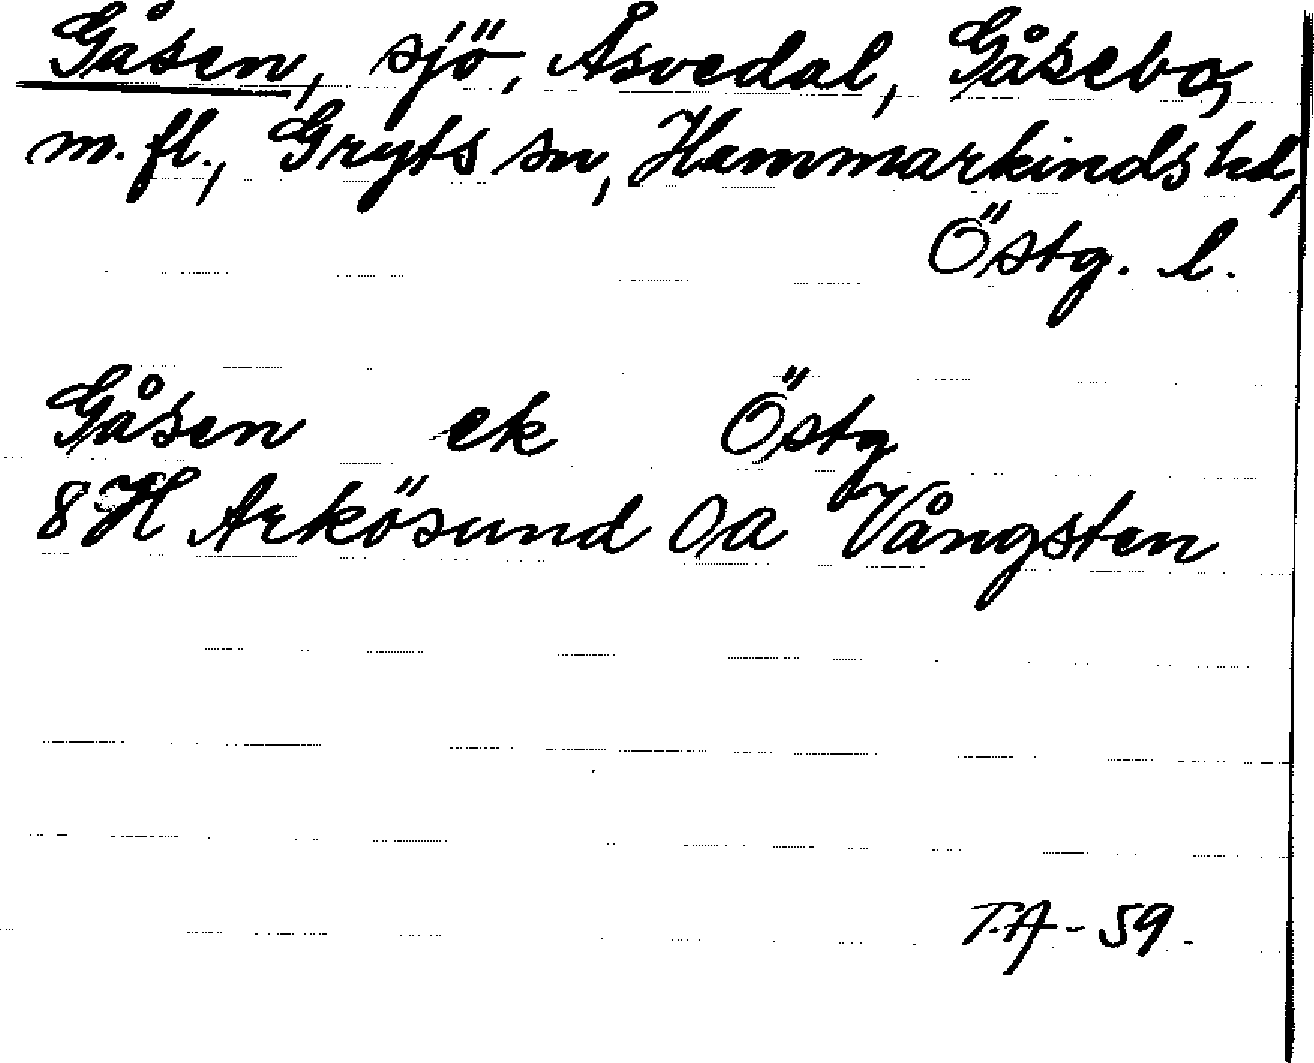 Gåsen, sjö, Åsvedal, Gåsebo,
m. fl., Gryts sn, Hammarkinds hd,
Östg. l.
Gåsen ek Östg
8H Arkösund Oa Vångsten
T.A-59.